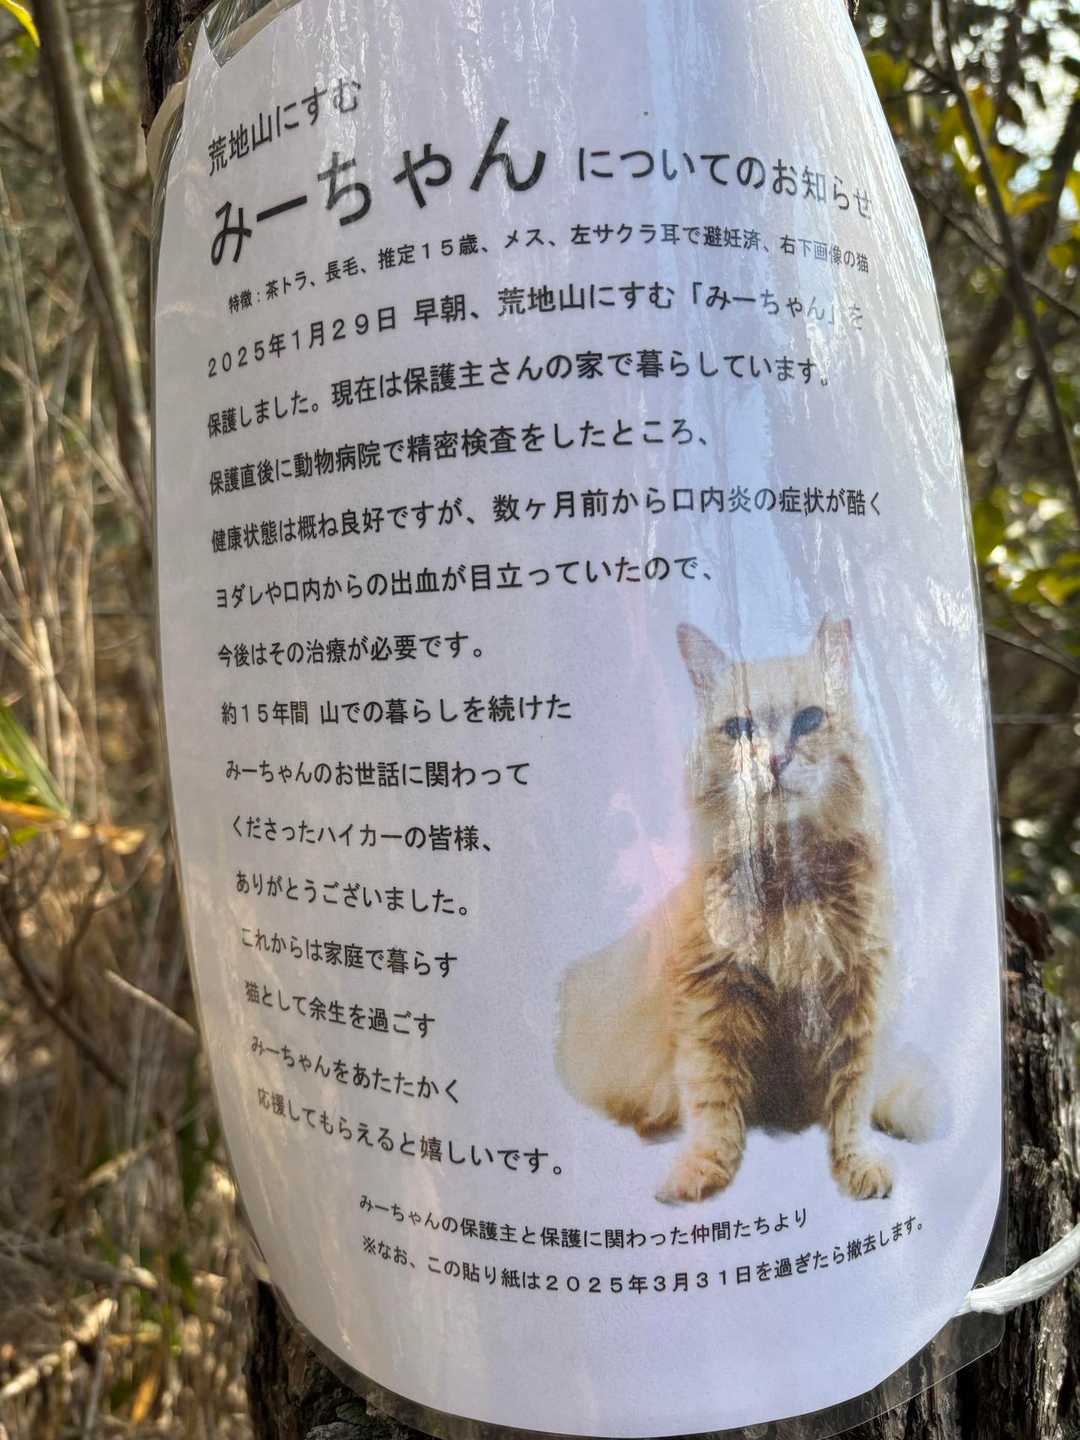 荒地山にすむ
みーちゃんについてのお知らせ
特徴：茶トラ、長毛、推定１５歳、メス、左サクラ耳で避妊済、右下画像の猫
２０２５年１月２９日 早朝、荒地山にすむ「みーちゃん」を
保護しました。現在は保護主さんの家で暮らしています。
保護直後に動物病院で精密検査をしたところ、
健康状態は概ね良好ですが、数ヶ月前から口内炎の症状が酷く
ヨダレや口内からの出血が目立っていたので、
今後はその治療が必要です。
約１５年間 山での暮らしを続けた
みーちゃんのお世話に関わって
くださったハイカーの皆様、
ありがとうございました。
これからは家庭で暮らす
猫として余生を過ごす
みーちゃんをあたたかく
応援してもらえると嬉しいです。
みーちゃんの保護主と保護に関わった仲間たちより
※なお、この貼り紙は２０２５年３月３１日を過ぎたら撤去します。